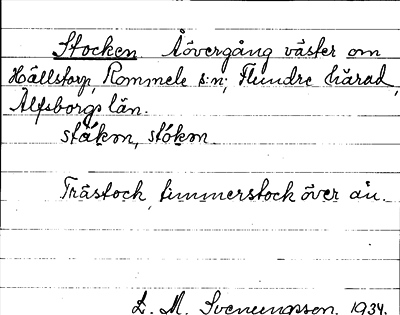 Stocken Åövergång väster om
Hällstorp, Rommele s:n, Flundre härad,
Älfsborgs län.
ståkən, stókən
Trästock, timmerstock över ån.
L. M. Svenungsson. 1934.